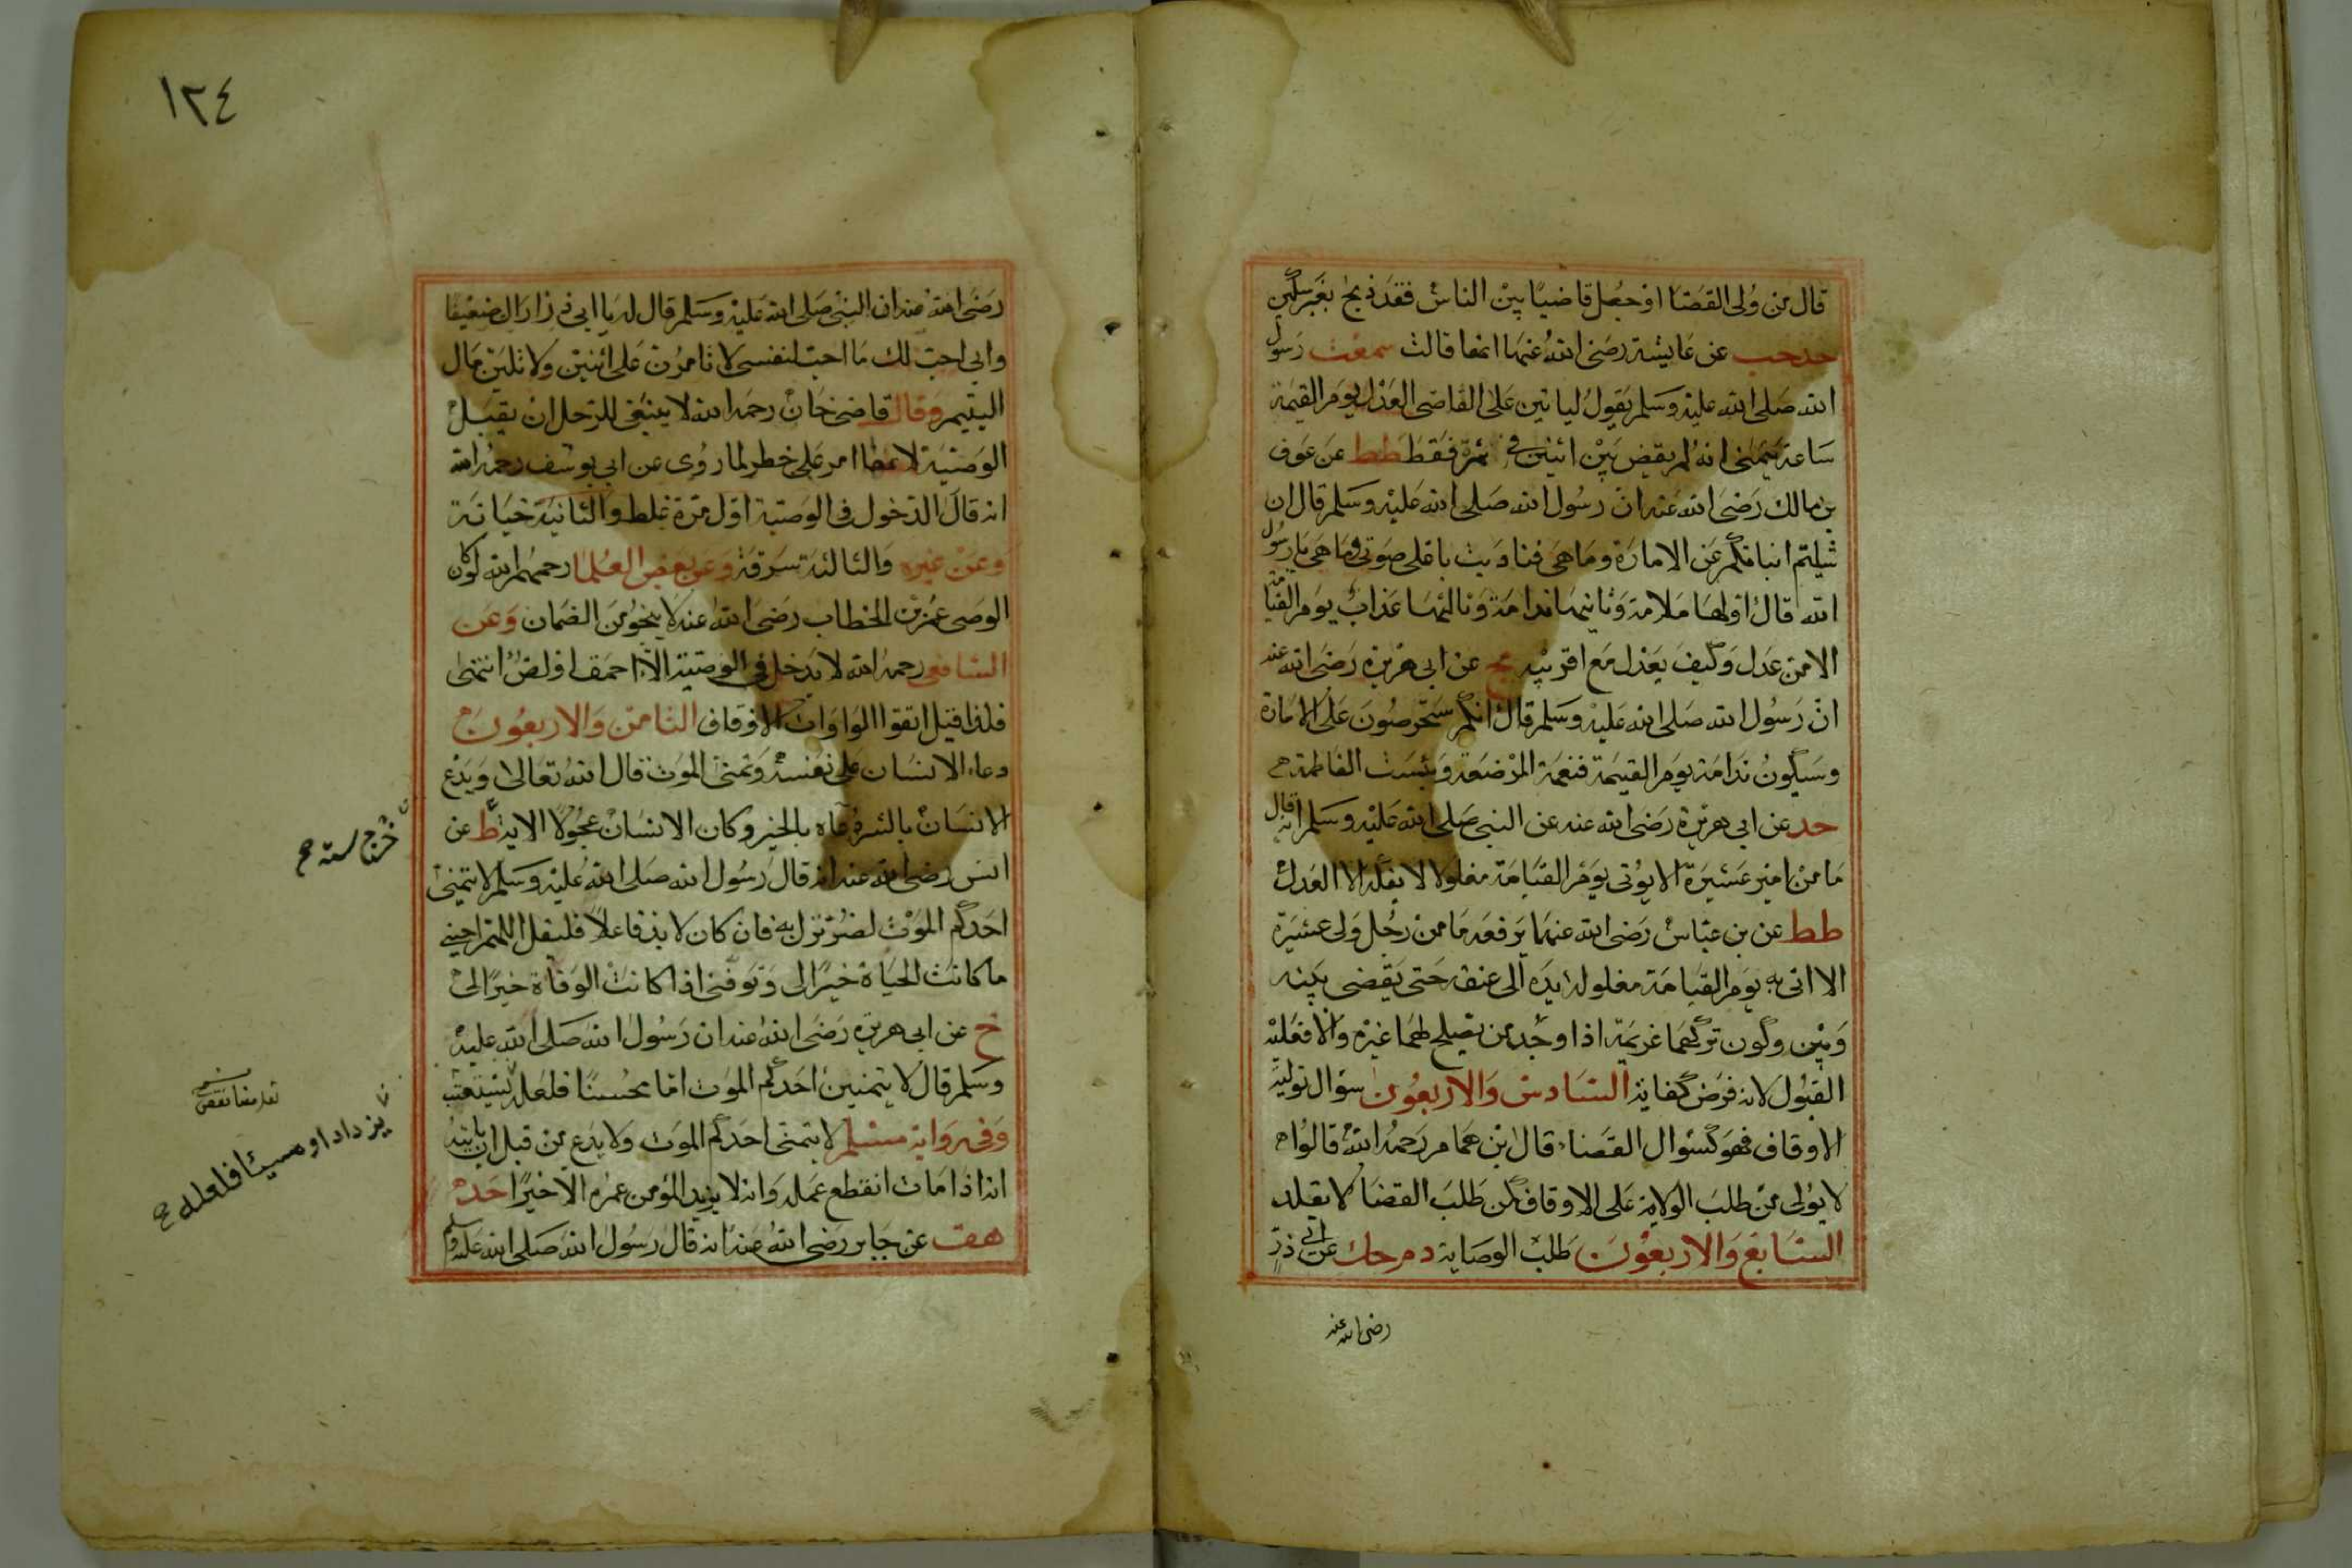 قال من ولى القضا او جعل قاضيا بين الناس فقد ذبح بغير سكين
حد حب عن عايشة رضى الله عنها انها قالت سمعت رسول
الله صلى الله عليه وسلم يقول لياتين على القاضى العدل يوم القيمة
ساعة يتمنى انه لم يقض بين اثنين في تمرة فقط طط عن عوف
بن مالك رضى الله عنه ان رسول الله صلى الله عليه وسلم قال ان
شيتم انباتكم عن الامارة وما هى فناديت باعلى صوتى وما هى يا رسول
الله قال اولها ملامة وثانيها ندامة وثالثها عذاب يوم القيامة
الا من عدل وكيف يعدل مع اقربيه خ عن ابى هريرة رضى الله عنه
ان رسول الله صلى الله عليه وسلم قال انكم ستحرصون على الامارة
وسيكون ندامة يوم القيمة فنعمة المرضعة وبئست الفاطمة
حد عن ابى هريرة رضى الله عنه عن النبى صلى الله عليه وسلم انه قال
ما من امير عشيرة الا يؤتى يوم القيامة مغلولا لا يفكه الا العدل
طط عن بن عباس رضى الله عنهما يرفعه ما من رجل ولى عشيرة
الا اتى به يوم القيامة مغلولة يده الى عنقه حتى يقضى بينه
وبين وكون تركهما عزيمة اذا وجد من يصلح لهما غيره والا فعليه
القبول لانه فرض كفاية السادس والاربعون سؤال تولية
الاوقاف فهو كسؤال القضاء قال ابن همام رحمه الله قالوا
لا يولى من طلب الولاية على الاوقاف كمن طلب القضا لا يقلد
السابع والاربعون طلب الوصاية د م حك عن ابى ذر
رضى الله عنه
١٢٤
رضى الله عنه ان النبى صلى الله عليه وسلم قال له يا ابى ذر اراك ضعيفا
وانى احب لك ما احب لنفسى لا تامرن على اثنين ولا تلين مال
اليتيم وقال قاضى خان رحمه الله لا ينبغى للرجل ان يقبل
الوصية لانها امر على خطر لما روى عن ابى يوسف رحمه الله
انه قال الدخول فى الوصية اول مرة غلط والثانية خيانة
وعن غيره والثالثة سرقة وعن بعض العلما رحمهم الله لو كان
الوصى عمر بن الخطاب رضى الله عنه لا ينجو من الضمان وعن
الشافعى رحمه الله لا يدخل فى الوصية الا احمق او لص انتهى
فلذا قيل اتقوا الواوات الاوقاف الثامن والاربعون
دعاء الانسان على نفسه وتمنى الموت قال الله تعالى ويدع
الانسان بالشر دعاه بالخير وكان الانسان عجولا الاية ط عن
انس رضى الله عنه انه قال رسول الله صلى الله عليه وسلم لا يتمنى
احدكم الموت لضر نزل به فان كان لا بد فاعلا فليقل اللهم احينى
ما كانت الحياة خيرا لى وتوفنى اذا كانت الوفاة خيرا لى
خ عن ابى هريرة رضى الله عنه ان رسول الله صلى الله عليه
وسلم قال لا يتمنين احدكم الموت اما محسنا فلعله يستعتب
وفى رواية مسلم لا يتمنى احدكم الموت ولا يدع من قبل ان ياتيه
انه اذا مات انقطع عمله وانه لا يزيد المؤمن عمره الا خيرا حد
هق عن جابر رضى الله عنه انه قال رسول الله صلى الله عليه وسلم
خرج سته
يزداد او مسيئا فلعله